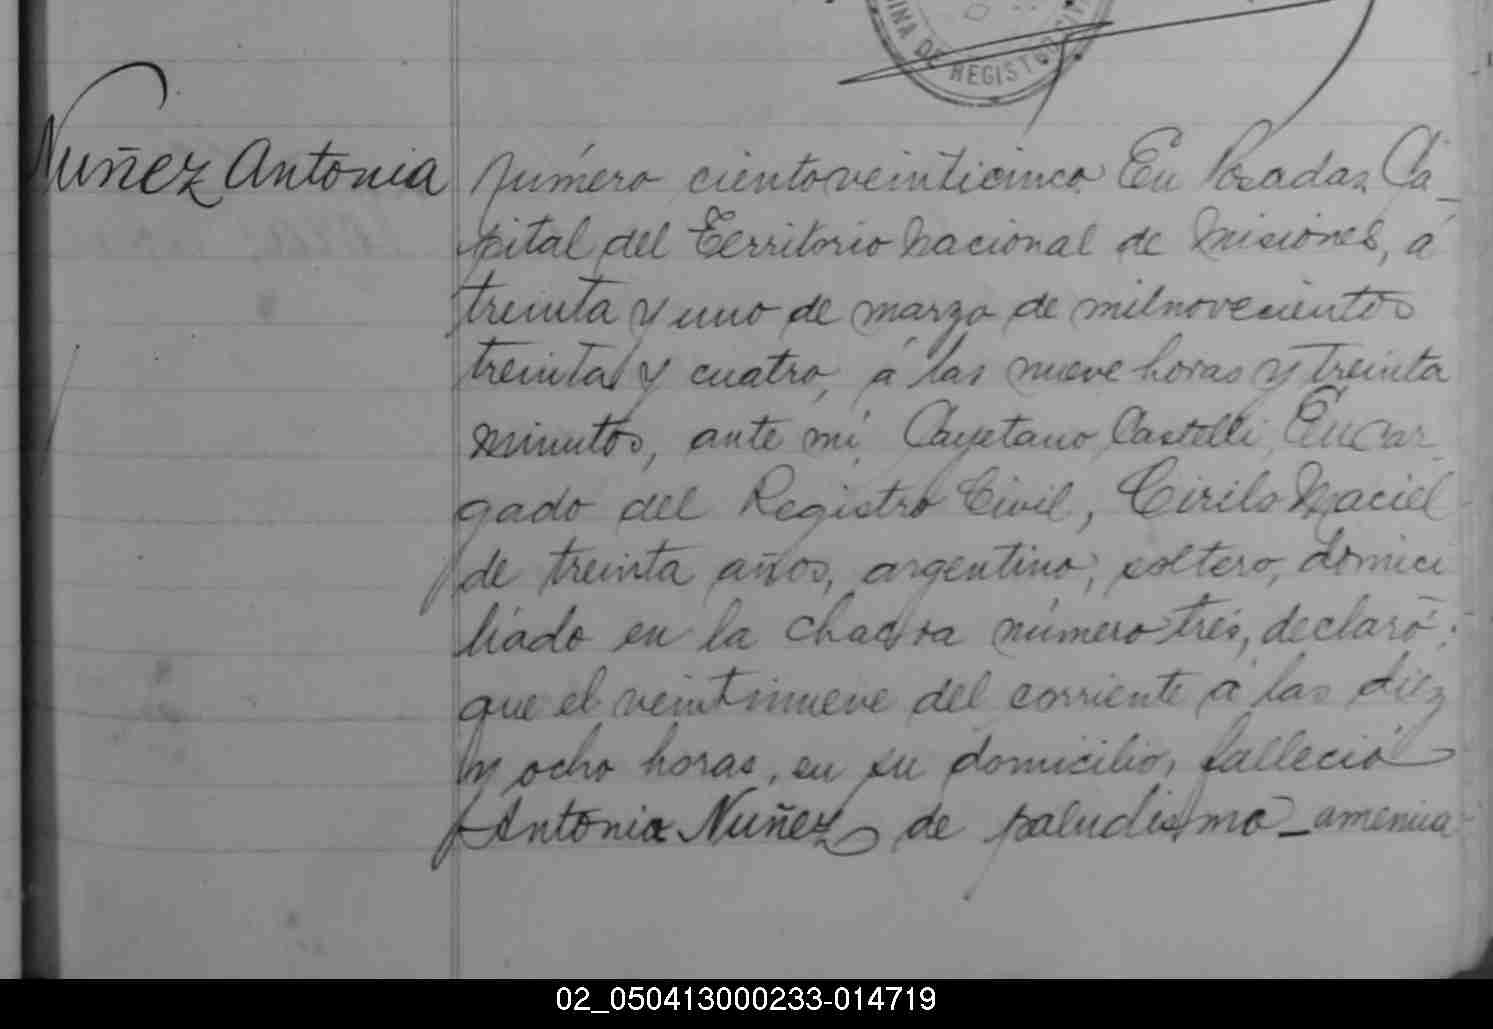 INA DE REGISTRO CI
Nuñez Antonia
Número cientoveinticinco En Posadas, Ca-
pital del Territorio Nacional de Misiones, á
treinta y uno de marzo de milnovecientos
treinta y cuatro, á las nueve horas y treinta
minutos, ante mí, Cayetano Castelli, Encar
gado del Registro Civil, Cirilo Maciel
de treinta años, argentino, soltero, domici
liado en la chacra número tres, declaró:
que el veintinueve del corriente á las diez
y ocho horas, en su domicilio, falleció
Antonia Nuñez de paludismo-amenia
02_050413000233-014719